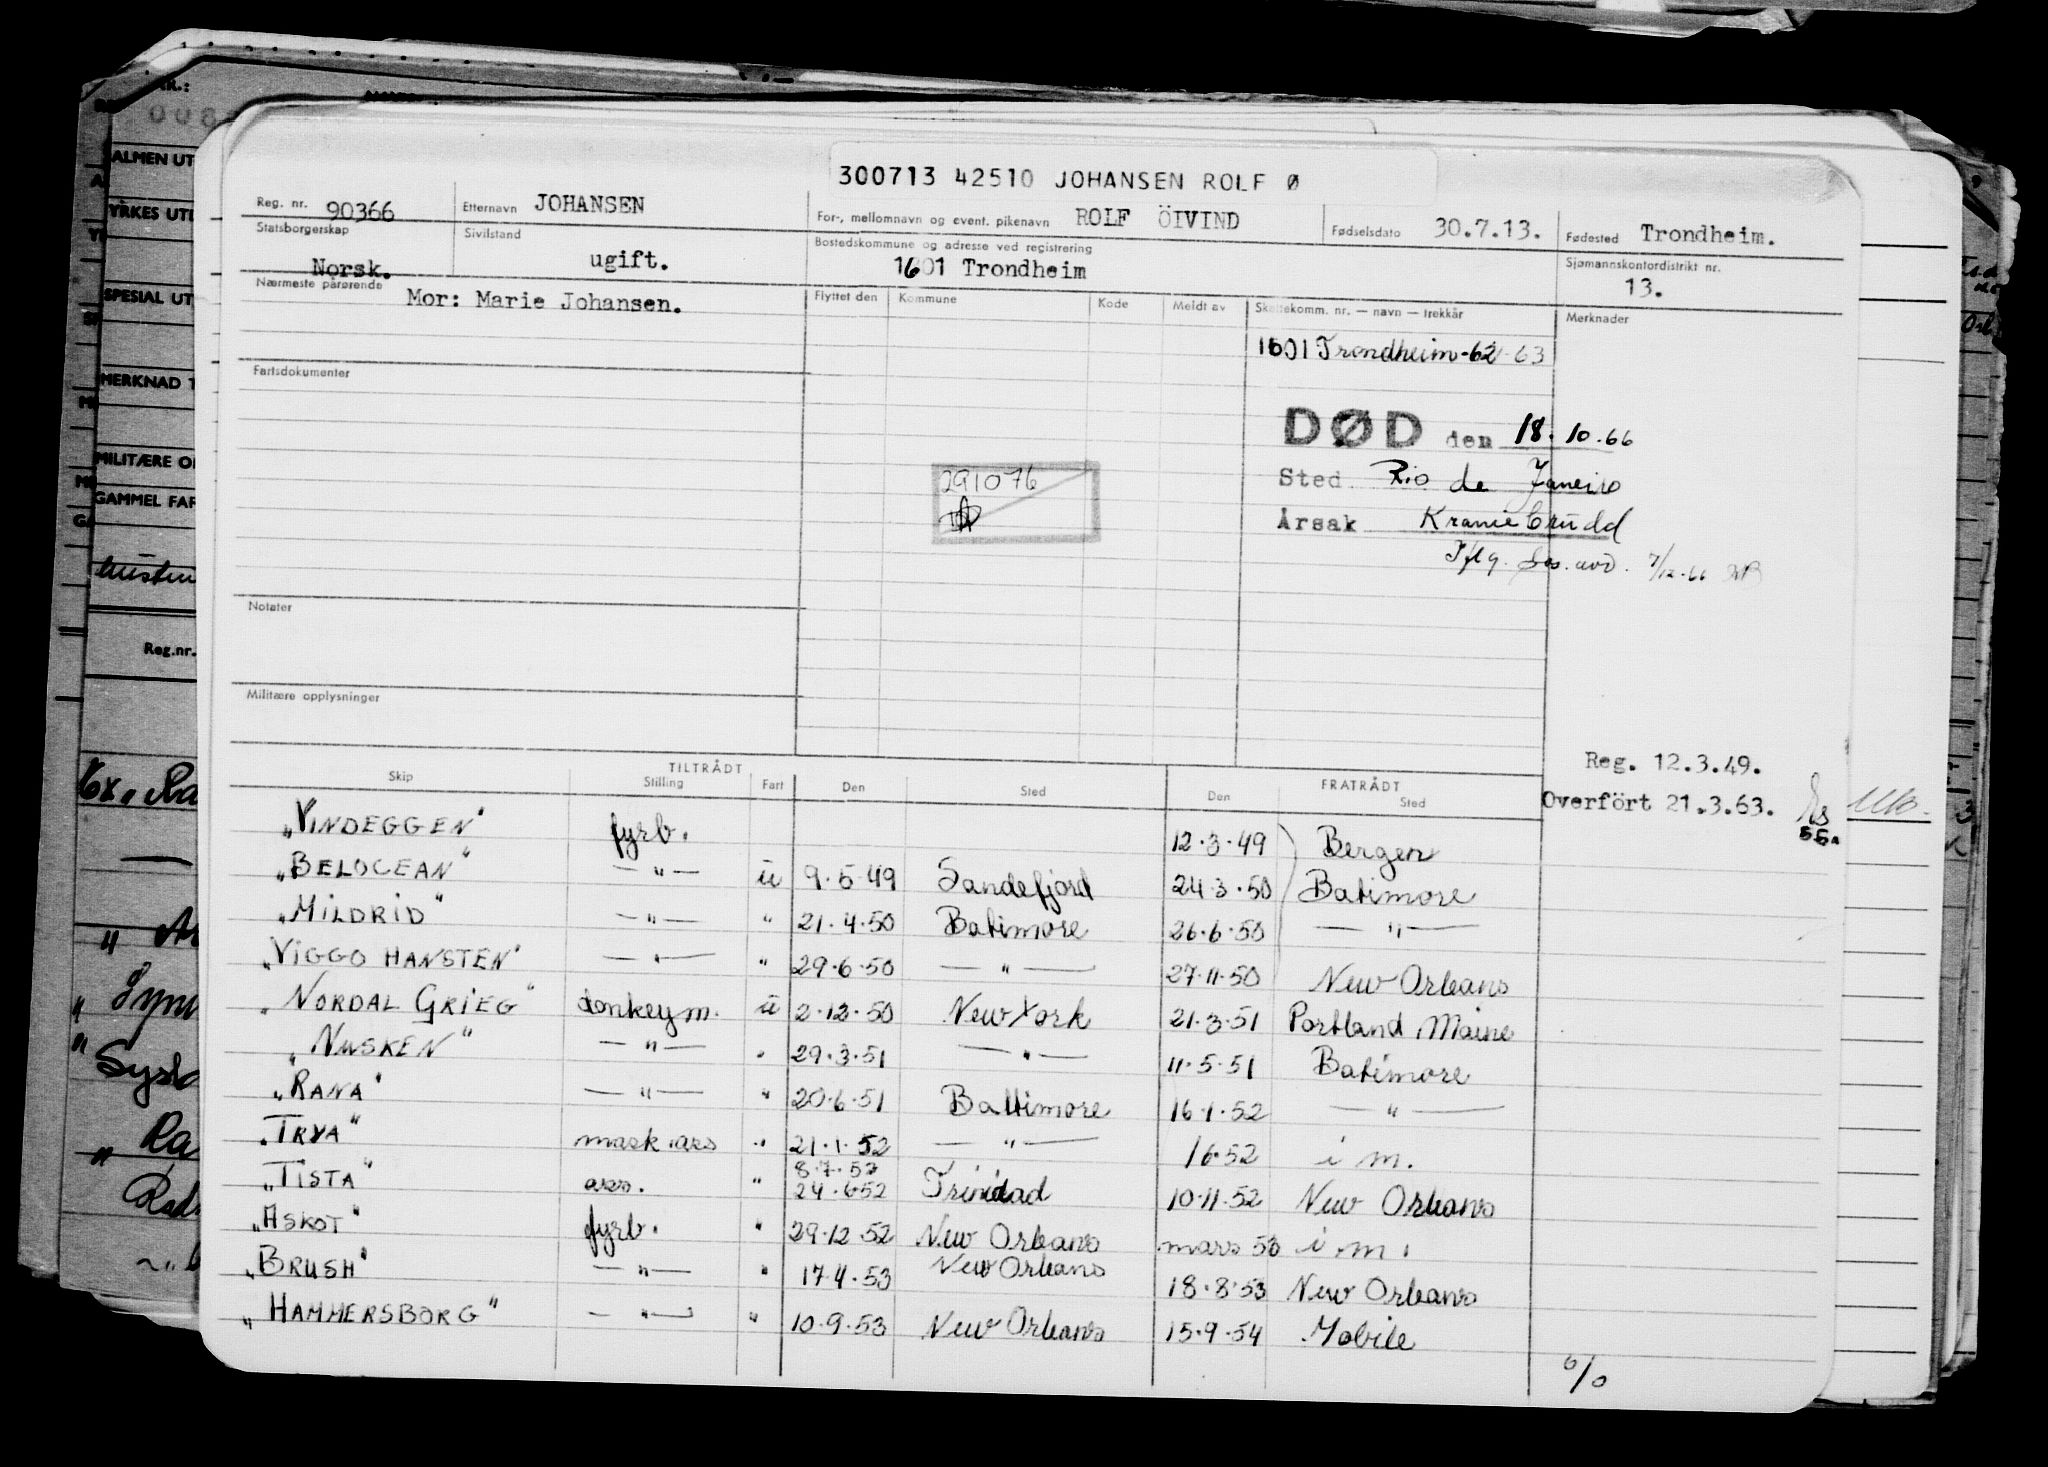 300713 42510 JOHANSEN ROLF Ø
Reg. nr. 90366 Etternavn JOHANSEN For-, mellomnavn og event. pikenavn ROLF ÖIVIND Fødselsdato 30.7.13. Fødested Trondheim.
Statsborgerskap Norsk. Sivilstand ugift. Bostedskommune og adresse ved registrering 1601 Trondheim Sjømannskontordistrikt nr. 13.
Nærmeste pårørende Mor: Marie Johansen. Flyttet den Kommune Kode Meldt av Skattekomm. nr. — navn — trekkår Merknader
1601 Trondheim-62-63
Fartsdokumenter
DØD den 18.10.66
291076
Sted Rio de Janeiro
Årsak Kraniebrudd
Iflg. Sos. avd. 7/12-66
Notater
Militære opplysninger
Reg. 12.3.49.
Overfört 21.3.63.
TILTRÅDT FRATRÅDT
Skip Stilling Fart Den Sted Den Sted
„VINDEGGEN" fyrb. 12.3.49 Bergen
„BELOCEAN" —"— u 9.5.49 Sandefjord 24.3.50 Batimore
„MILDRID" —"— " 21.4.50 Batimore 26.6.50 —"—
„VIGGO HANSTEN" —"— " 29.6.50 —"— 27.11.50 New Orleans
„NORDAL GRIEG" donkeym. u 2.12.50 New York 21.3.51 Portland Maine
„NUSKEN" —"— " 29.3.51 —"— 11.5.51 Batimore
„RANA" —"— " 20.6.51 Baltimore 16.1.52 —"—
„TRYA" mask.ass " 21.1.52 —"— 1652 i m.
8.7.52
„TISTA" ass. " 24.652 Trinidad 10.11.52 New Orleans
„ASKOT" fyrb. " 29.12.52 New Orleans mars 53 i m.
„BRUSH" —"— " 17.4.53 New Orleans 18.8.53 New Orleans
„HAMMERSBORG" —"— " 10.9.53 New Orleans 15.9.54 Mobile
%
ALMEN UT
YRKES UTD
SPESIAL UT
MERKNAD T
MILITÆRE O
GAMMEL FAR
Reg.nr.